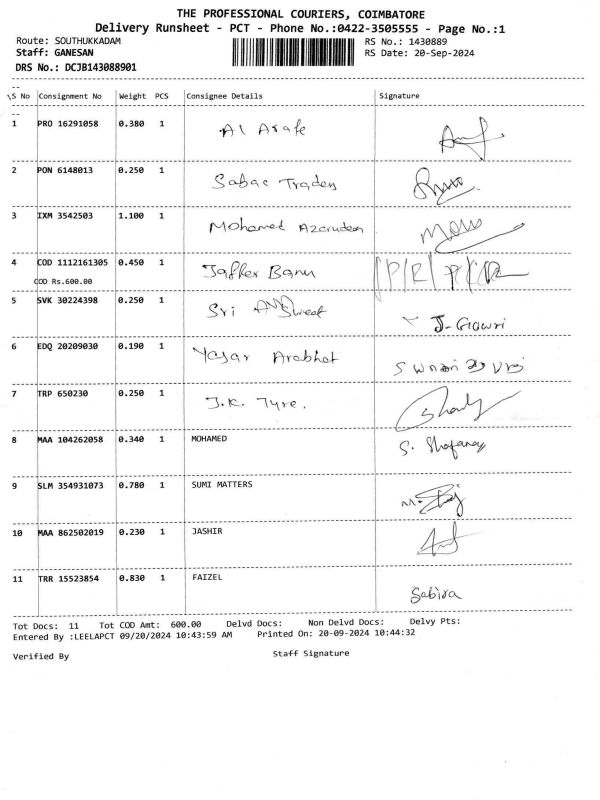 THE PROFESSIONAL COURIERS, COIMBATORE
Delivery Runsheet - PCT - Phone No.:0422-3505555 - Page No.:1
Route: SOUTHUKKADAM RS No.: 1430889
Staff: GANESAN RS Date: 20-Sep-2024
DRS No.: DCJB143088901
S No Consignment No Weight PCS Consignee Details Signature
1 PRO 16291058 0.380 1 Al Arafe
2 PON 6148013 0.250 1 Sabac Traders
3 IXM 3542503 1.100 1 Mohamed Azarudeen
4 COD 1112161305 0.450 1 Jaffer Banu
COD Rs.600.00
5 SVK 30224398 0.250 1 Sri Sweet J. Gowri
6 EDQ 20209030 0.190 1 Yasar Arabhat
7 TRP 650230 0.250 1 J.K. Tyre.
8 MAA 104262058 0.340 1 MOHAMED S.
9 SLM 354931073 0.780 1 SUMI MATTERS
10 MAA 862502019 0.230 1 JASHIR
11 TRR 15523854 0.830 1 FAIZEL Sabira
Tot Docs: 11 Tot COD Amt: 600.00 Delvd Docs: Non Delvd Docs: Delvy Pts:
Entered By :LEELAPCT 09/20/2024 10:43:59 AM Printed On: 20-09-2024 10:44:32
Verified By Staff Signature